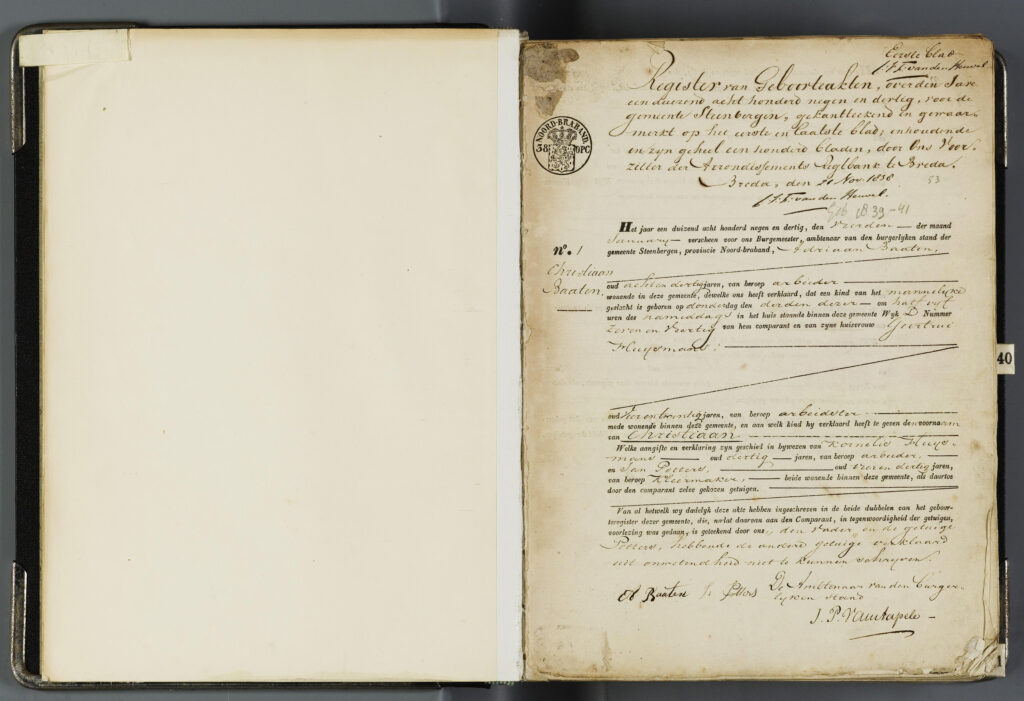 Eerste blad
J.F. van den Heuvel
Register van Geboorteakten, over den Jare
een duizend acht honderd negen en dertig, voor de
gemeente Steenbergen, gekantteekend en gewaar-
merkt op het eerste en laatste blad, inhoudende
en zyn geheel een honderd bladen, door Ons Voor-
zitter der Arrondissements Regtbank te Breda.
Breda, den 21 Nov. 1838
53
J.F. van den Heuvel.
Geb 1839-41
NOORD-BRABAND
38 OPC
Het jaar een duizend acht honderd negen en dertig, den Vierden der maand
January verscheen voor ons Burgemeester, ambtenaar van den burgerlyken stand der
gemeente Steenbergen, provincie Noord-braband, Adriaan Baaten,
No. 1
Christiaan
Baaten
oud acht en dertig jaren, van beroep arbeider
wonende in deze gemeente, dewelke ons heeft verklaard, dat een kind van het mannelyke
geslacht is geboren op donderdag den derden dezer om half vyf
uren des namiddags in het huis staande binnen deze gemeente Wyk D Nummer
zeven en veertig van hem comparant en van zyne huisvrouw Geertrui
Huysmans:
oud jaren, van beroep arbeidster
mede wonende binnen deze gemeente, en aan welk kind hy verklaard heeft te geven den voornaam
van Christiaan
Welke aangifte en verklaring zyn geschied in bywezen van Kornelis Huys-
mans oud dertig jaren, van beroep arbeider
en Jan Potters, oud vier en dertig jaren,
van beroep Kleermaker, beide wonende binnen deze gemeente, als daartoe
door den comparant zelve gekozen getuigen.
Van al hetwelk wy dadelyk deze akte hebben ingeschreven in de beide dubbelen van het geboor-
teregister dezer gemeente, die, nadat daarvan aan den Comparant, in tegenwoordigheid der getuigen,
voorlezing was gedaan, is geteekend door ons, den Vader en de getuige
Potters, hebbende de andere getuige verklaard
uit onwetendheid niet te kunnen schryven.
A Baaten J. Potters De Ambtenaar van den burger-
lyken stand
J. P. Vankapele
40